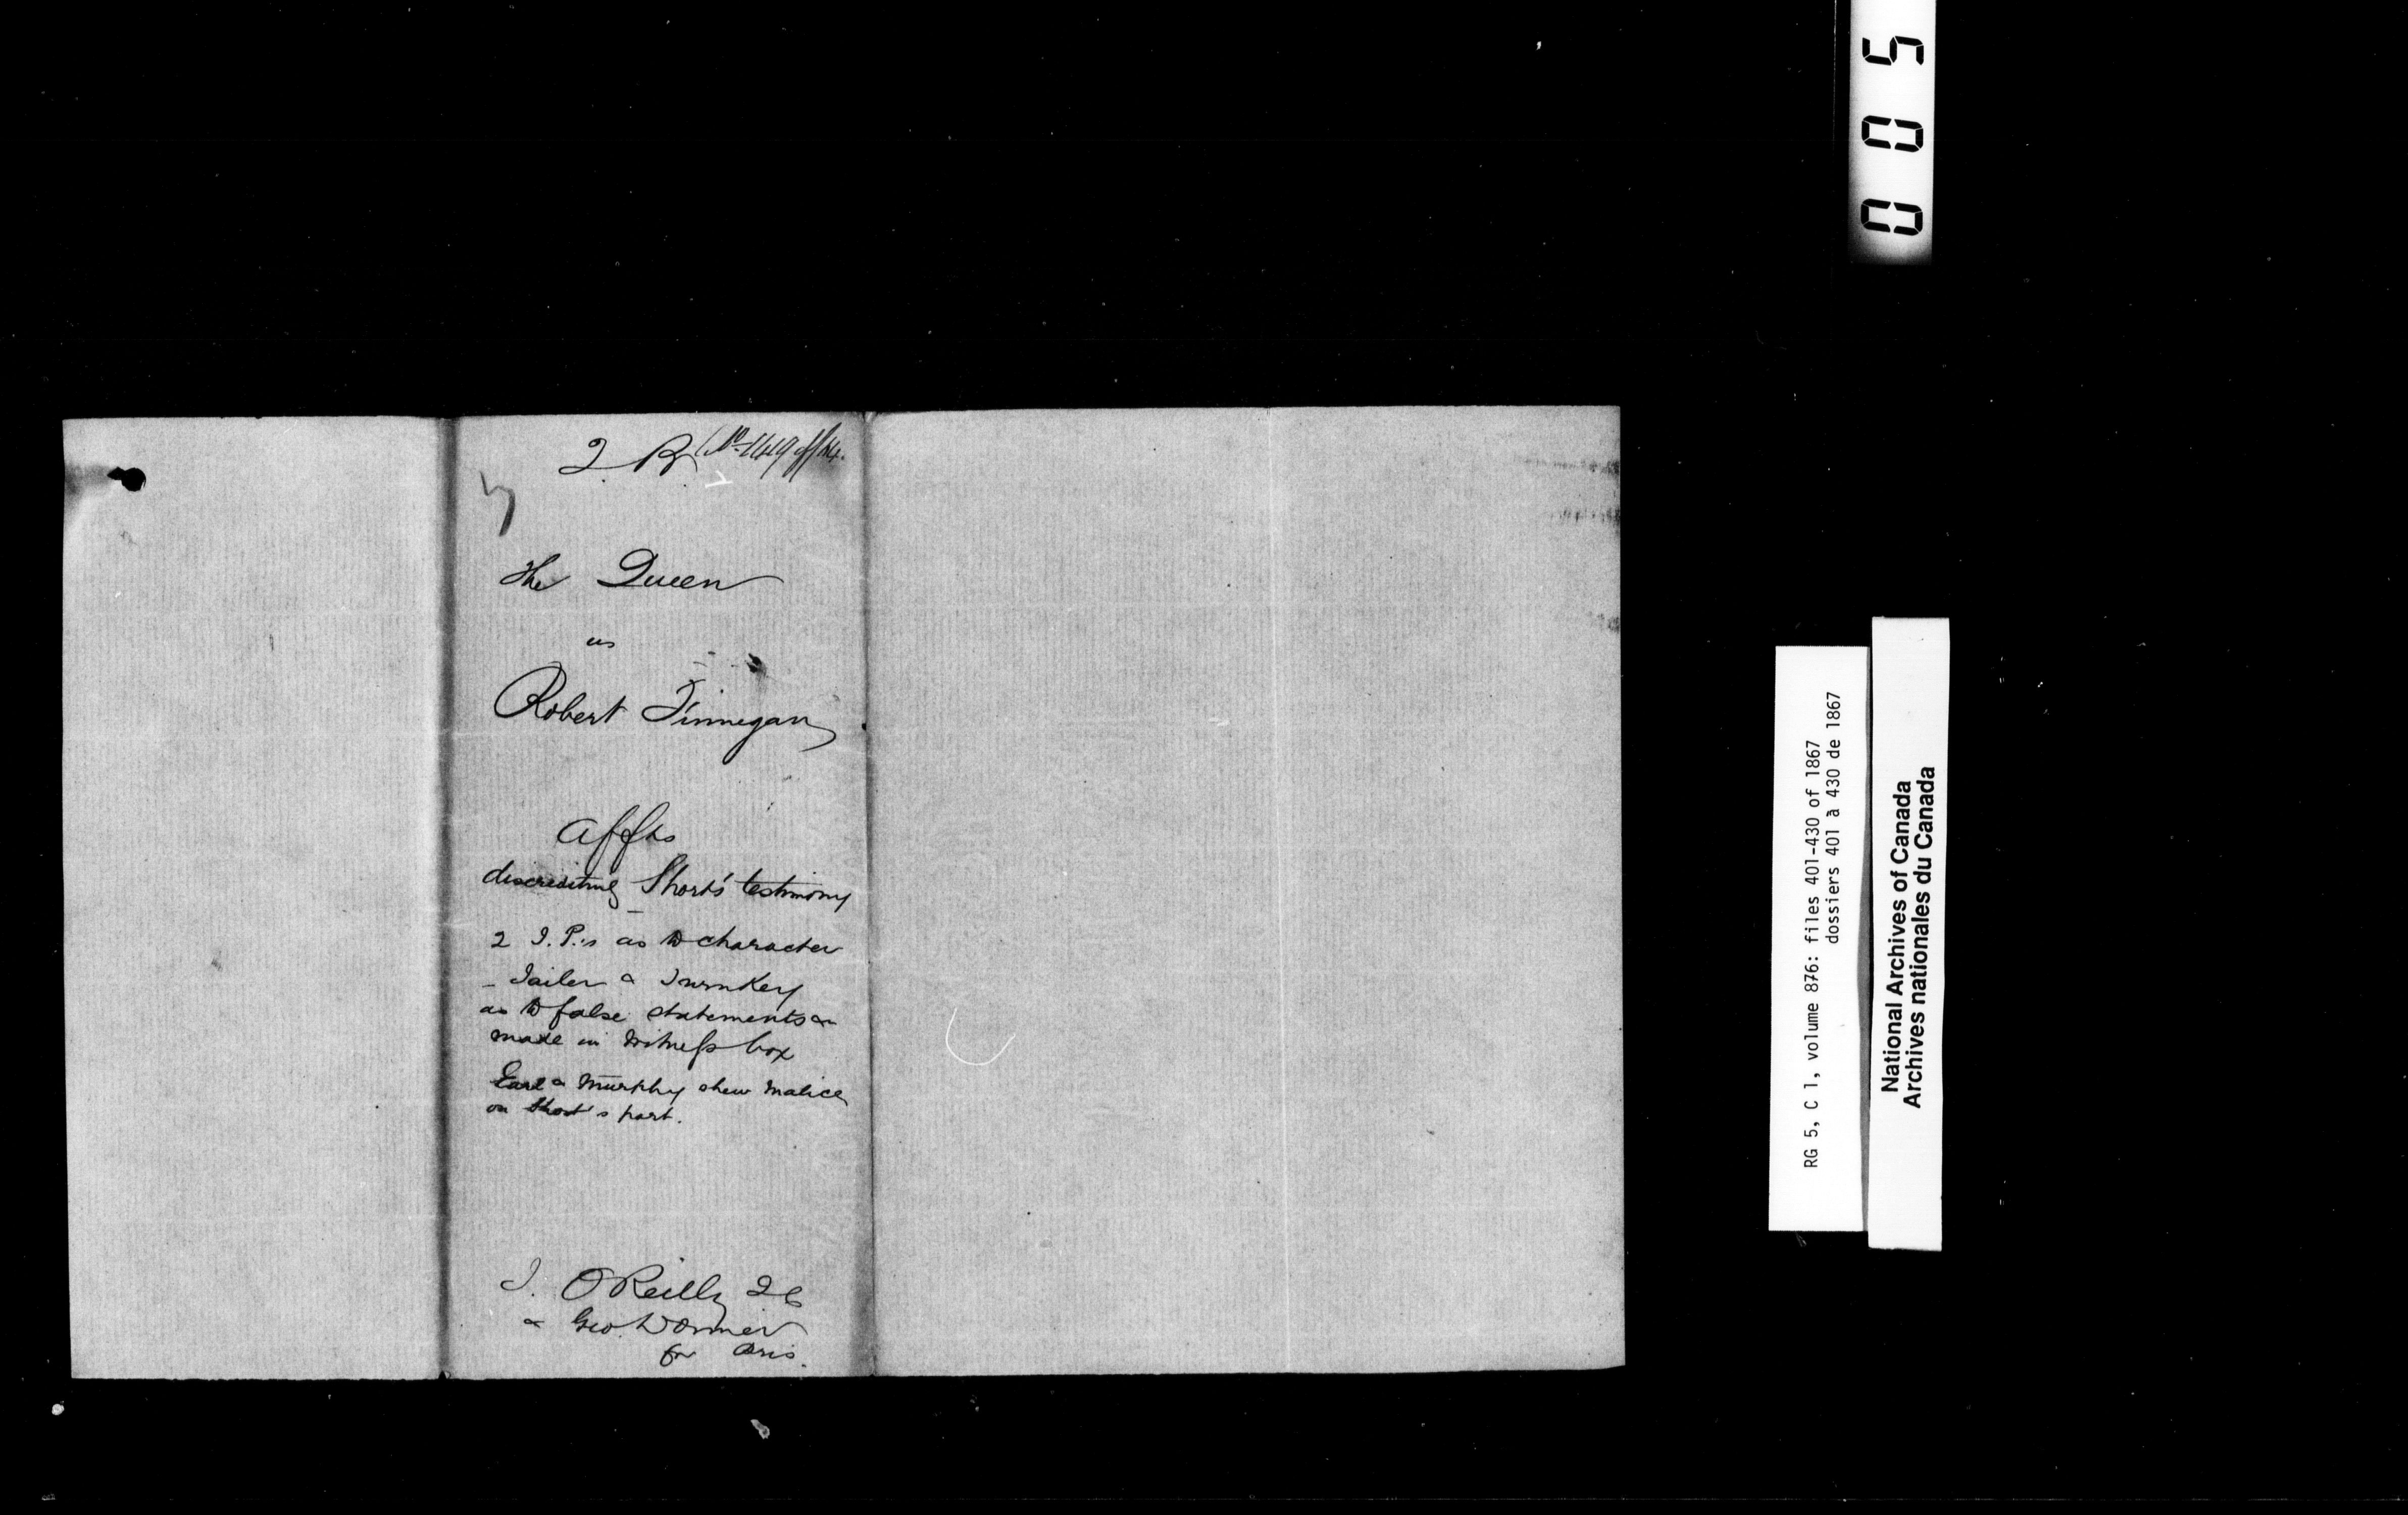 Q. B.
The Queen
vs
Robert Finnegan
Affts
discrediting Short's testimony
2 J. P.'s as to character
- Jailer & Turnkey
as to false statements
made in witness box
Earl & Murphy shew malice
on Short's part.
J. O'Reilly QC
& Geo.
for Pris.
005
RG 5, C 1, volume 876: files 401-430 of 1867
dossiers 401 à 430 de 1867
National Archives of Canada
Archives nationales du Canada